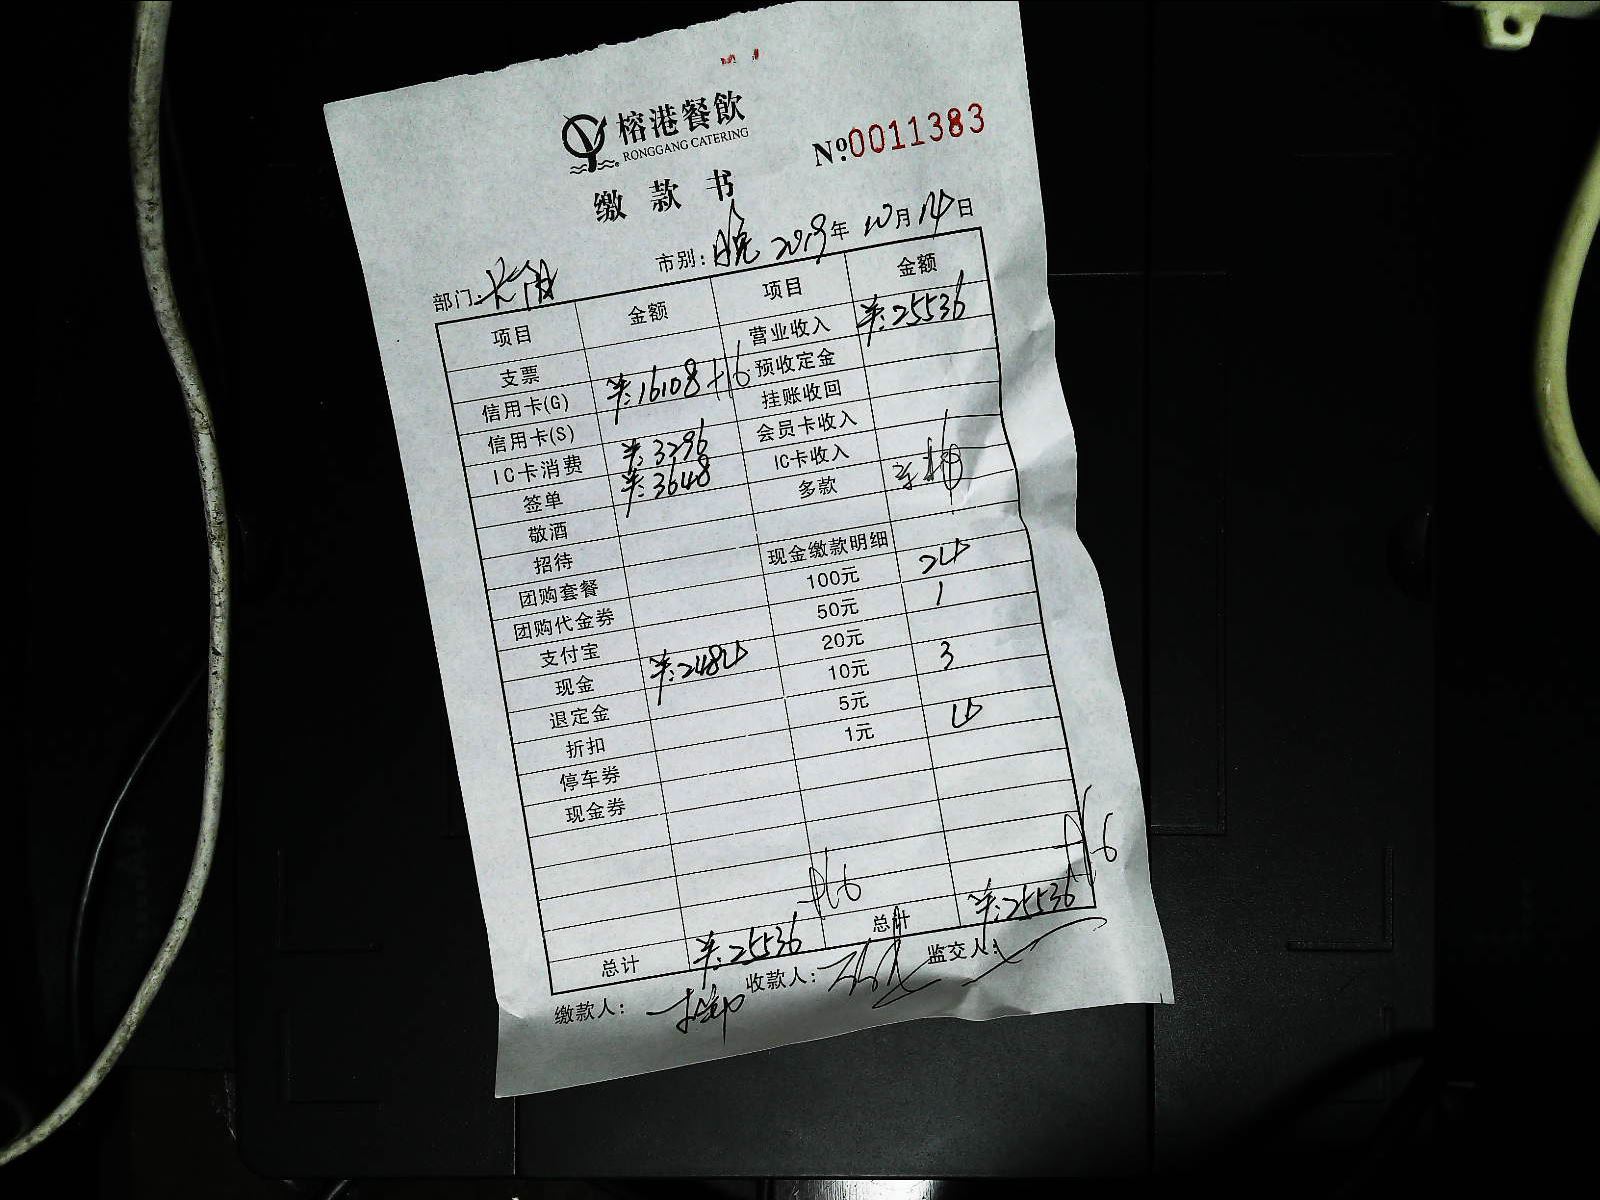 榕港餐飲
RONGGANG CATERING
№0011383
缴款书
部门: 市别: 晚 2019年10月14日
项目 金额 项目 金额
支票 营业收入 ¥:25536
信用卡(G) ¥:16108+16 预收定金
信用卡(S) 挂账收回
IC卡消费 ¥:3296 会员卡收入
签单 ¥:3648 IC卡收入
敬酒 多款
招待
团购套餐 现金缴款明细
团购代金券 100元 24
支付宝 50元 1
现金 ¥:2484 20元
退定金 10元 3
折扣 5元
停车券 1元 4
现金券
+16 +16
总计 ¥:25536 总计 ¥:25536
缴款人: 收款人: 监交人: